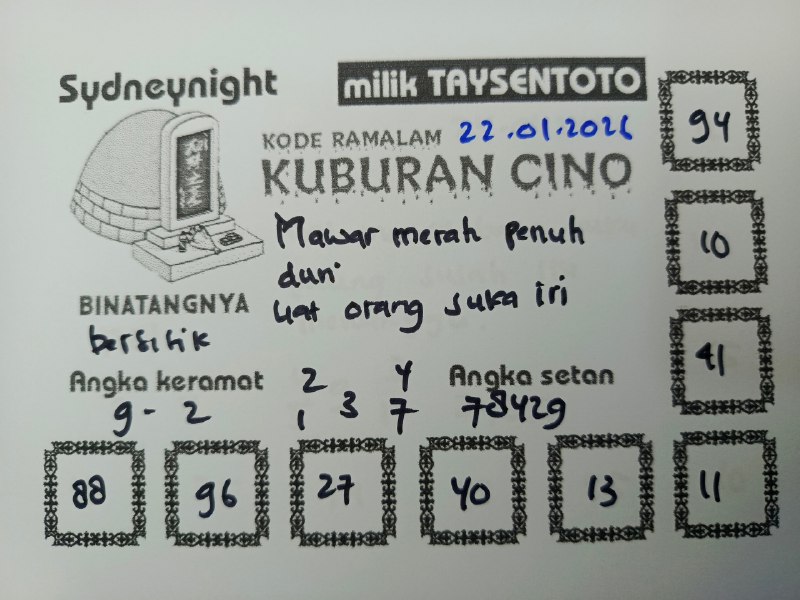 Sydneynight
milik TAYSENTOTO
KODE RAMALAM 22.01.2026
KUBURAN CINO
Mawar merah penuh
duri
liat orang suka iri
BINATANGNYA
bersisik
Angka keramat
9 - 2
2 4
1 3 7
Angka setan
78429
94
10
41
88 96 27 40 13 11